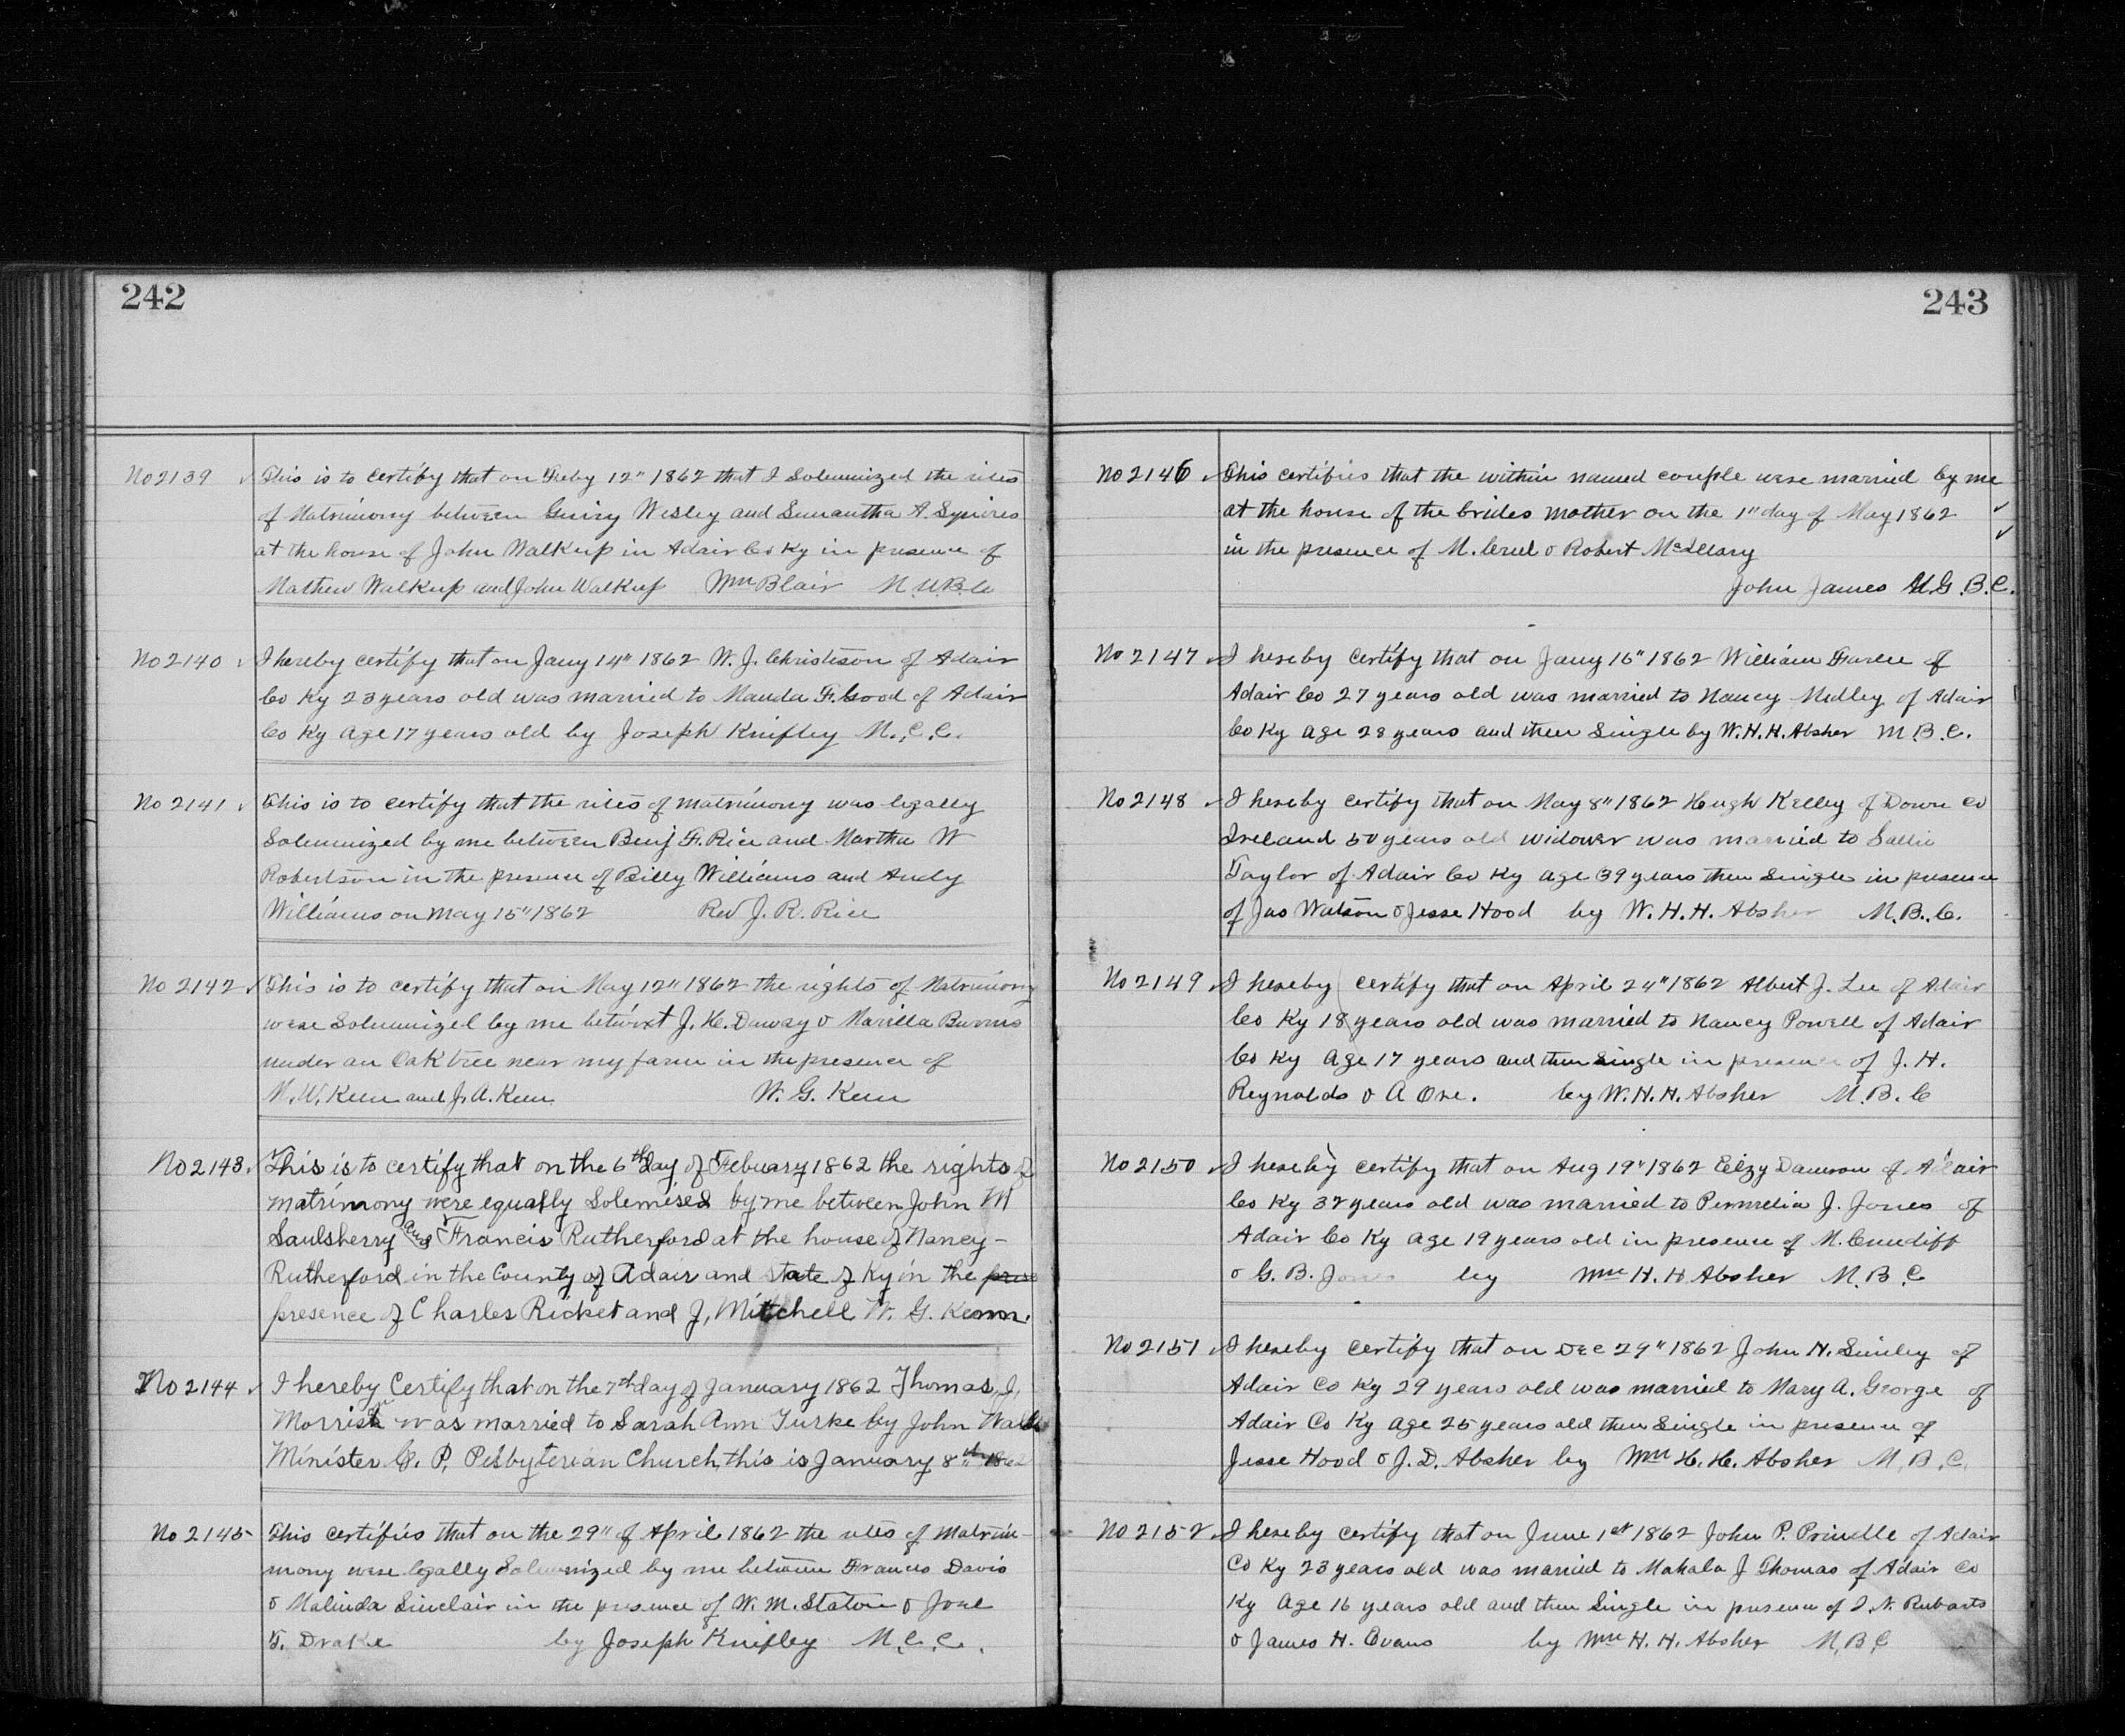 242
No 2139 This is to certify that on Feby 12" 1862 that I Solemnized the rites
of Matrimony between Wesley and Samantha A. Squires
at the house of John Walkup in Adair Co Ky in presence of
Mathew Walkup and John Walkup Wm Blair M.U.B.C
No 2140 I hereby certify that on Jany 14" 1862 W. J. Christison of Adair
Co Ky 23 years old was married to Manda F. Good of Adair
Co Ky age 17 years old by Joseph Knifley M.C.C.
No 2141 This is to certify that the rites of matrimony was legally
Solemnized by me between Benj F. Rice and Martha W
Robertson in the presence of Billy Williams and Andy
Williams on May 15" 1862 Rev J. R. Rice
No 2142 This is to certify that on May 12" 1862 the rights of Matrimony
were Solemnized by me betwixt J. H. & Marilla Burris
under an Oak tree near my farm in the presence of
W. Keen and J. A. Keen W. G. Keen
No 2143 This is to certify that on the 6th day of Febuary 1862 the rights of
matrimony were equally Solemised by me between John M
Saulsberry and Francis Rutherford at the house of Nancy-
Rutherford in the County of Adair and state of Ky in the
presence of Charles Ricket and J, Mitchell W. G.
No 2144 I hereby Certify that on the 7th day of January 1862 Thomas, J,
was married to Sarah Ann Turke by John
Minister C. P. Pesbyterian Church, this is January 8th 1862
No 2145 This certifies that on the 29" of April 1862 the rites of Matrim-
mony were legally Solemnized by me between Frances Davis
& Malinda Sinclair in the presence of W. M. Staton &
F. Drake by Joseph Knifley M.C.C.
243
No 2146 This certifies that the within named couple were married by me
at the house of the brides mother on the 1" day of May 1862
in the presence of M. & Robert
John James M.G.B.C.
No 2147 I hereby certify that on Jany 15" 1862 William of
Adair Co 27 years old was married to Nancy of Adair
Co Ky age 28 years and then Single by W.H.H. Absher M.B.C.
No 2148 I hereby certify that on May 8" 1862 Hugh Kelley of Down Co
Ireland 50 years old widower was married to Sallie
Taylor of Adair Co Ky age 39 years then Single in presence
of Jas Watson & Jesse Hood by W. H. H. Absher M.B.C.
No 2149 I hereby certify that on April 24" 1862 Albert J. Lee of Adair
Co Ky 18 years old was married to Nancy Powell of Adair
Co Ky age 17 years and then Single in presence of J. H.
Reynolds & A by W. H. H. Absher M.B.C
No 2150 I hereby certify that on Aug 19" 1862 Elzy Damron of Adair
Co Ky years old was married to Permelia J. Jones of
Adair Co Ky age 19 years old in presence of M. Cundiff
& G. B. Jones by Wm H. H Absher M.B.C
No 2151 I hereby certify that on Dec 29" 1862 John H. of
Adair Co Ky 29 years old was married to Mary A. George of
Adair Co Ky age 25 years old then Single in presence of
Jesse Hood & J. D. Absher by Wm H. H. Absher M.B.C.
No 2152 I hereby certify that on June 1st 1862 John P. of Adair
Co Ky 23 years old was married to Mahala J Thomas of Adair Co
Ky age 16 years old and then Single in presence of Rubarts
& James H. Evans by Wm H. H. Absher M.B.C